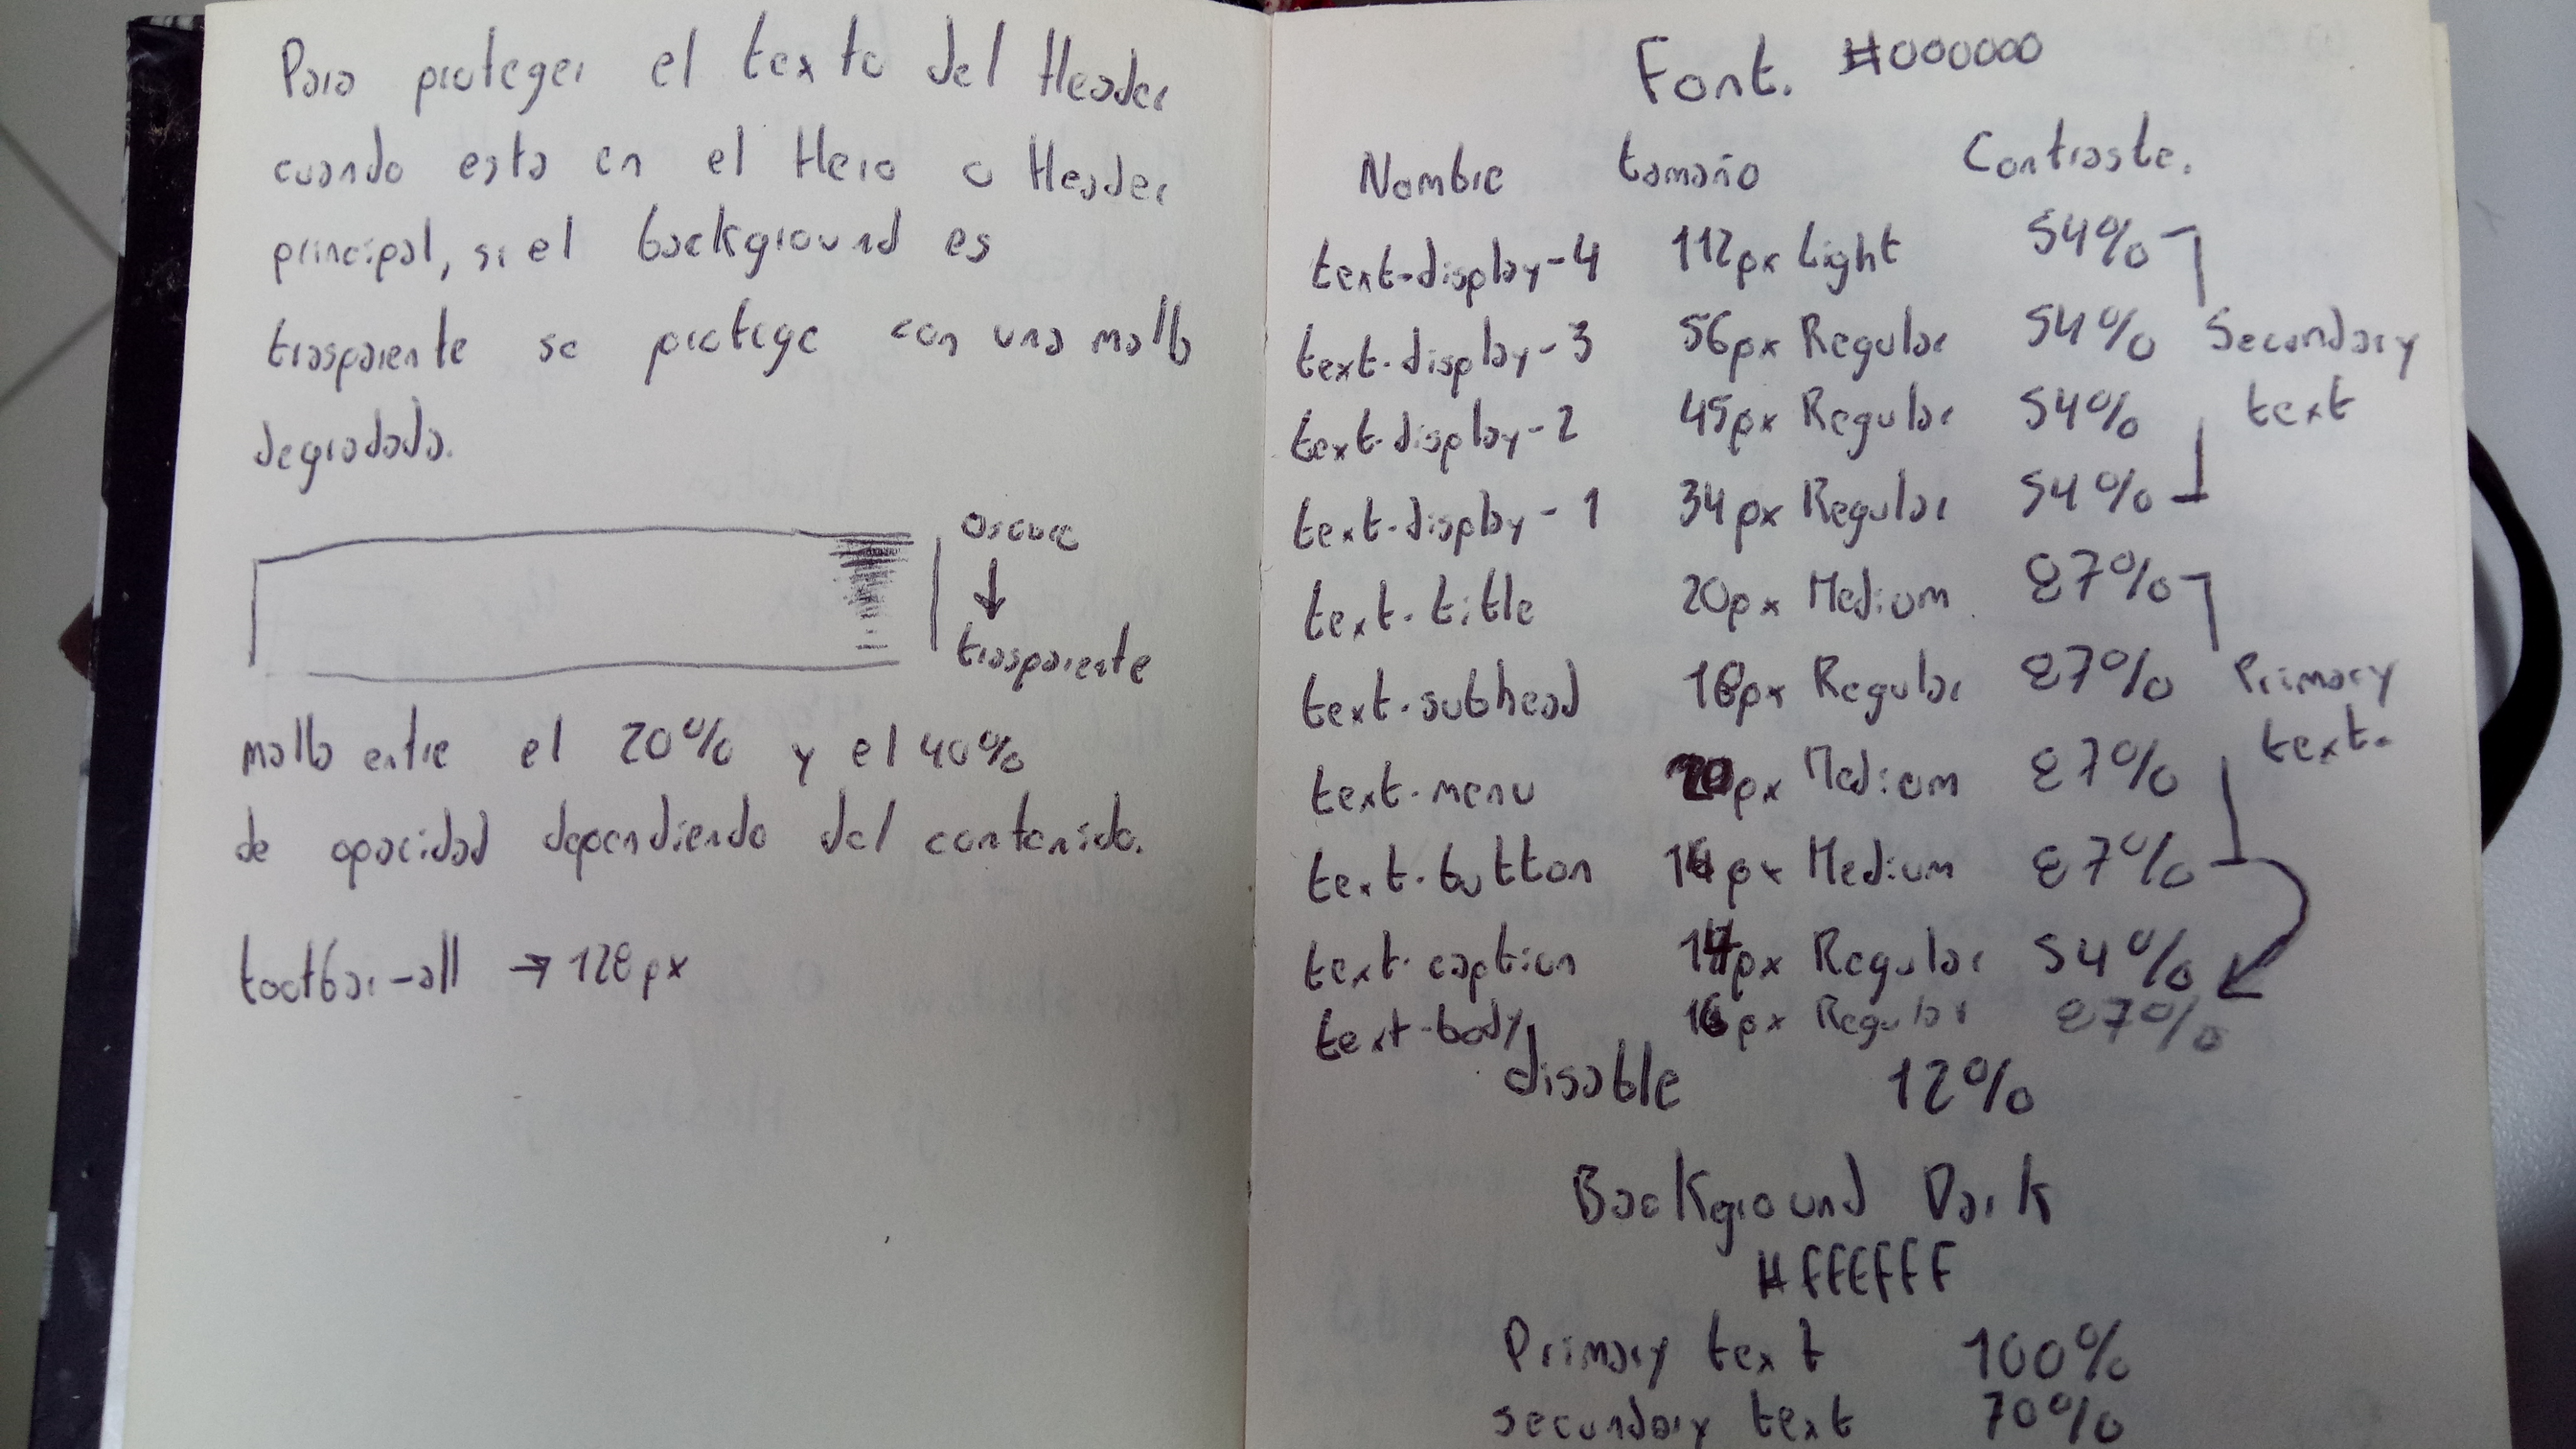 Para proteger el texto del Header
cuando esta en el Hero o Header
principal, si el background es
trasparente se protege con una malla
degradada.
oscuro
↓
trasparente
malla entre el 20% y el 40%
de opacidad dependiendo del contenido.
→ 128px
Font. #000000
Nombre tamaño Contraste.
text-display-4 112px Light 54%
text-display-3 56px Regular 54% Secondary
text-display-2 45px Regular 54% text
text-display-1 34px Regular 54%
text-title 20px Medium 87%
text-subhead Regular 87% Primary
text-menu 20px Medium 87% text.
text-button Medium 87%
text-caption 14px Regular 54%
text-body 16px Regular 87%
disable 12%
Background Dark
#FFFFFF
Primary text 100%
secundary text 70%